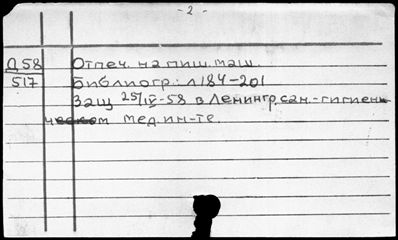 - 2 -
Д58 Отпеч. на пиш. маш.
517 Библиогр: л 184-201
Защ 25/IV-58 в Ленингр. сан.-гигиен-
ческом мед. ин-те